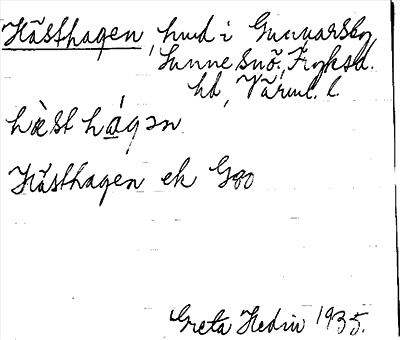 Hästhagen, hmd i Gunnarsby,
Sunne snö, Fryksd.
hd, Värml. l.
hɛ̀st hágən
Hästhagen ek Goo
Greta Hedin 1935.